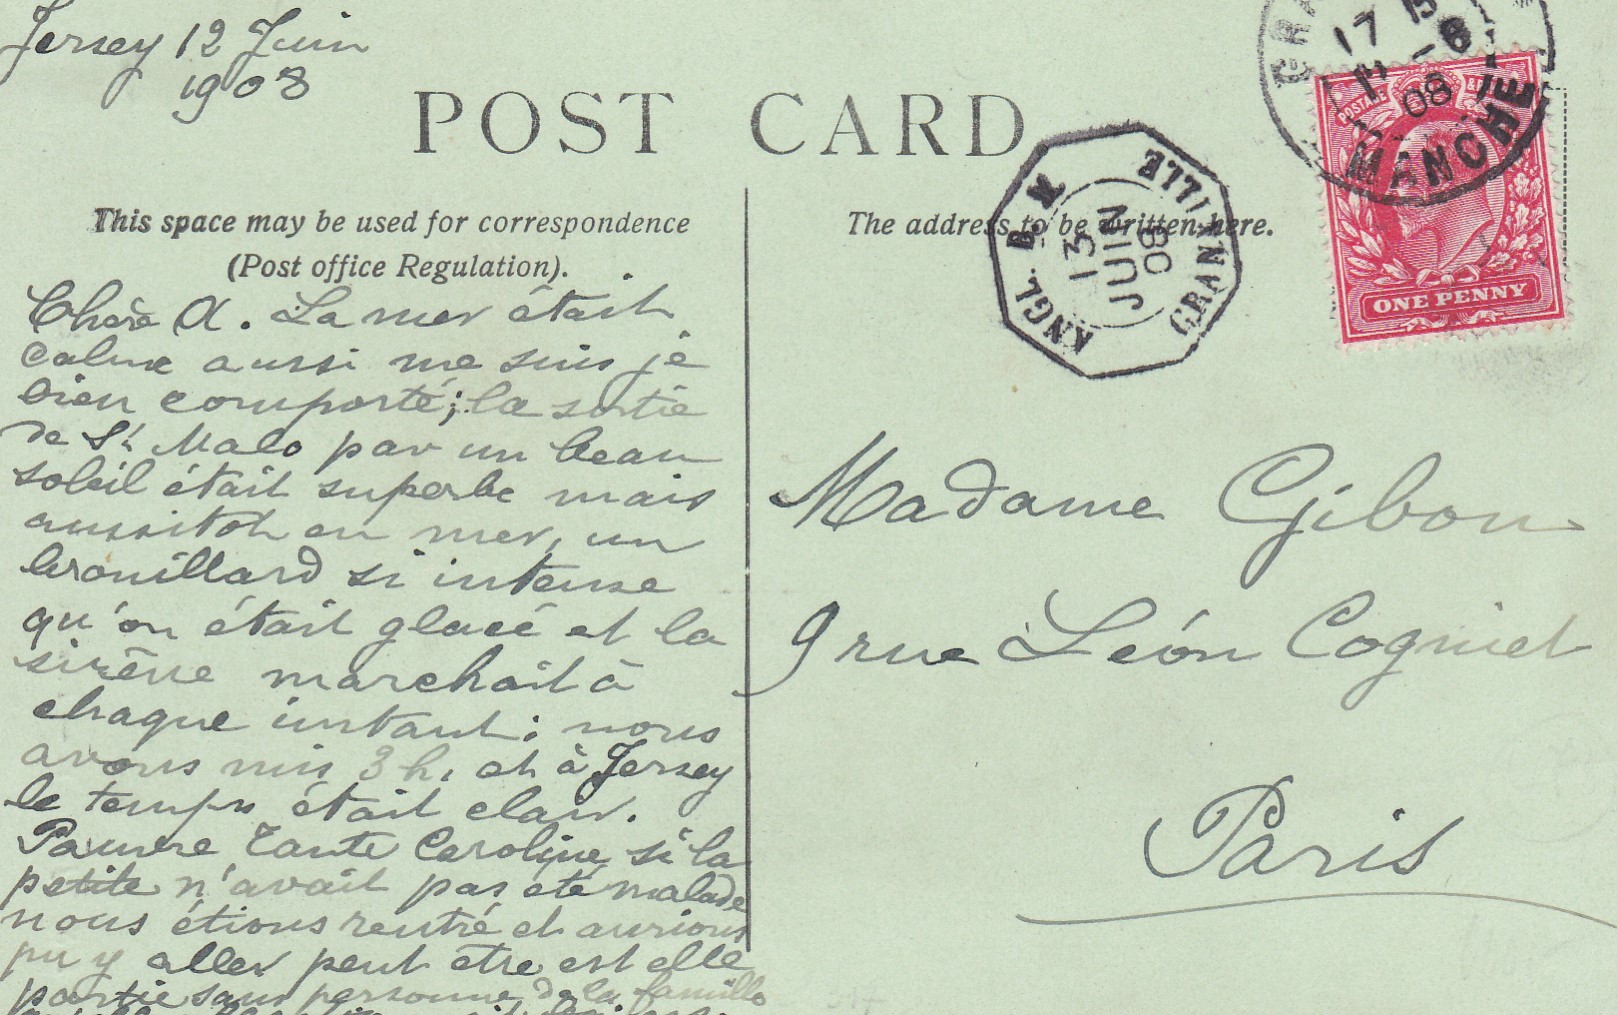 Jersey 12 Juin
1908
POST CARD
This space may be used for correspondence
(Post office Regulation).
The address to be written here.
Chère A. La mer était
calme aussi me suis je
bien comporté; la sortie
de St Malo par un beau
soleil était superbe mais
aussitot en mer, un
brouillard si intense
qu'on était glacé et la
sirène marchait à
chaque instant; nous
avons mis 3 h. et à Jersey
le temps était clair.
Pauvre Tante Caroline si la
petite n'avait pas été malade
nous étions rentré et aurions
pu y aller peut être est elle
partie sans personne de la famille
Madame Gibon
9 rue Léon Cogniet
Paris
GRANVILLE
ANGL. B. M
13
JUIN
08
17
08
MANCHE
POSTAGE
ONE PENNY